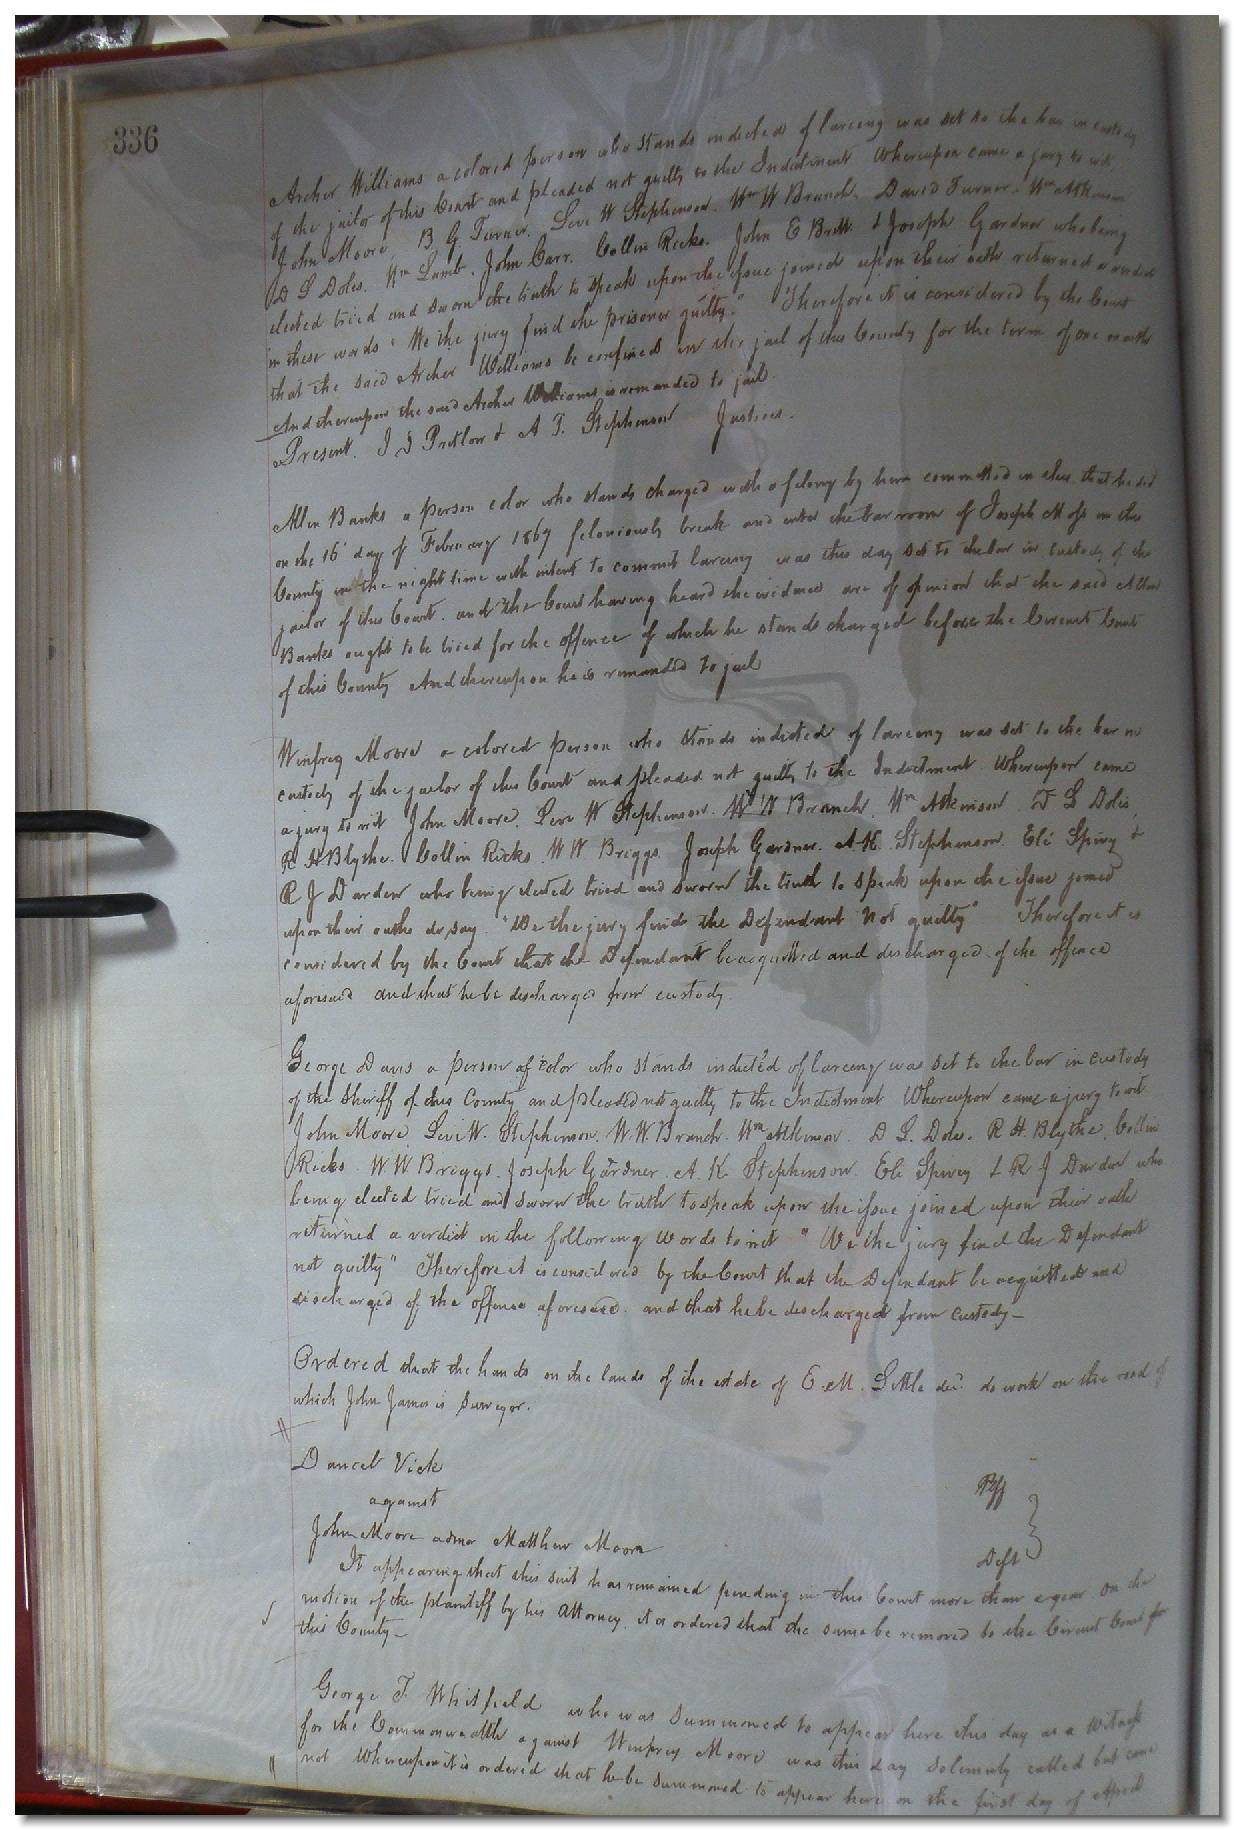 336
Archer Williams a colored person who stands indicted of larceny was set to the bar in custody
of the jailor of this Court and pleaded not guilty to the Indictment Whereupon came a jury to wit
John Moore, B. G. Turner, Levi W Stephenson, Wm W Branch, David Turner, Wm Atkinson
D L Doles, Wm Lamb, John Carr, Collin Ricks, John E Britt & Joseph Gardner who being
elected tried and sworn the truth to speak upon the issue joined upon their oath returned a verdict
in these words "We the jury find the prisoner guilty." Therefore it is considered by the Court
that the said Archer Williams be confined in the jail of this County for the term of one month
And thereupon the said Archer Williams is remanded to jail.
Present. J D Pretlow & A. T. Stephenson Justices.
Allen Banks a person color who stands charged with a felony by him committed in this that he did
on the 15 day of February 1869 feloniously break and enter the bar room of Joseph Moss in this
County in the night time with intent to commit larceny was this day set to the bar in custody of the
jailor of this Court. and the Court having heard the evidence are of opinion that the said Allen
Banks ought to be tried for the offence of which he stands charged before the Circuit Court
of this County And thereupon he is remanded to jail
Winfrey Moore a colored person who stands indicted of larceny was set to the bar in
custody of the jailor of this Court and pleaded not guilty to the Indictment Whereupon came
a jury to wit John Moore, Levi W Stephenson. W W Branch, Wm Atkinson D L Doles,
R H Blythe. Collin Ricks. W W Briggs. Joseph Gardner. A K. Stephenson. Eli Spivy &
R J Darden who being elected tried and sworn the truth to speak upon the issue joined
upon their oaths do say. "We the jury find the Defendant Not guilty" Therefore it is
considered by the Court that the Defendant be acquitted and discharged of the offence
aforesaid and that he be discharged from custody.
George Davis a person of color who stands indicted of larceny was set to the bar in custody
of the Sheriff of this County and pleaded not guilty to the Indictment Whereupon came a jury to wit
John Moore, Levi W. Stephenson. W. W Branch. Wm Atkinson. D. L. Doles. R. H. Blythe. Collin
Ricks. W W Briggs. Joseph Gardner. A. K. Stephenson. Eli Spivey & R J Darden who
being elected tried and sworn the truth to speak upon the issue joined upon their oath
returned a verdict in the following words to wit "We the jury find the Defendant
not guilty" Therefore it is considered by the Court that the Defendant be acquitted and
discharged of the offence aforesaid. and that he be discharged from custody—
Ordered that the hands on the lands of the estate of E. M. Settle decd do work on the road of
which John James is Surveyor.
Daniel Vick Plff
against
John Moore admr Matthew Moore Deft
It appearing that this suit has remained pending in this Court more than a year On the
motion of the plaintiff by his Attorney. it is ordered that the same be removed to the Circuit Court for
this County—
George T. Whitfield who was summoned to appear here this day as a Witness
for the Commonwealth against Winfrey Moore was this day solemnly called but came
not Whereupon it is ordered that he be summoned to appear here on the first day of April